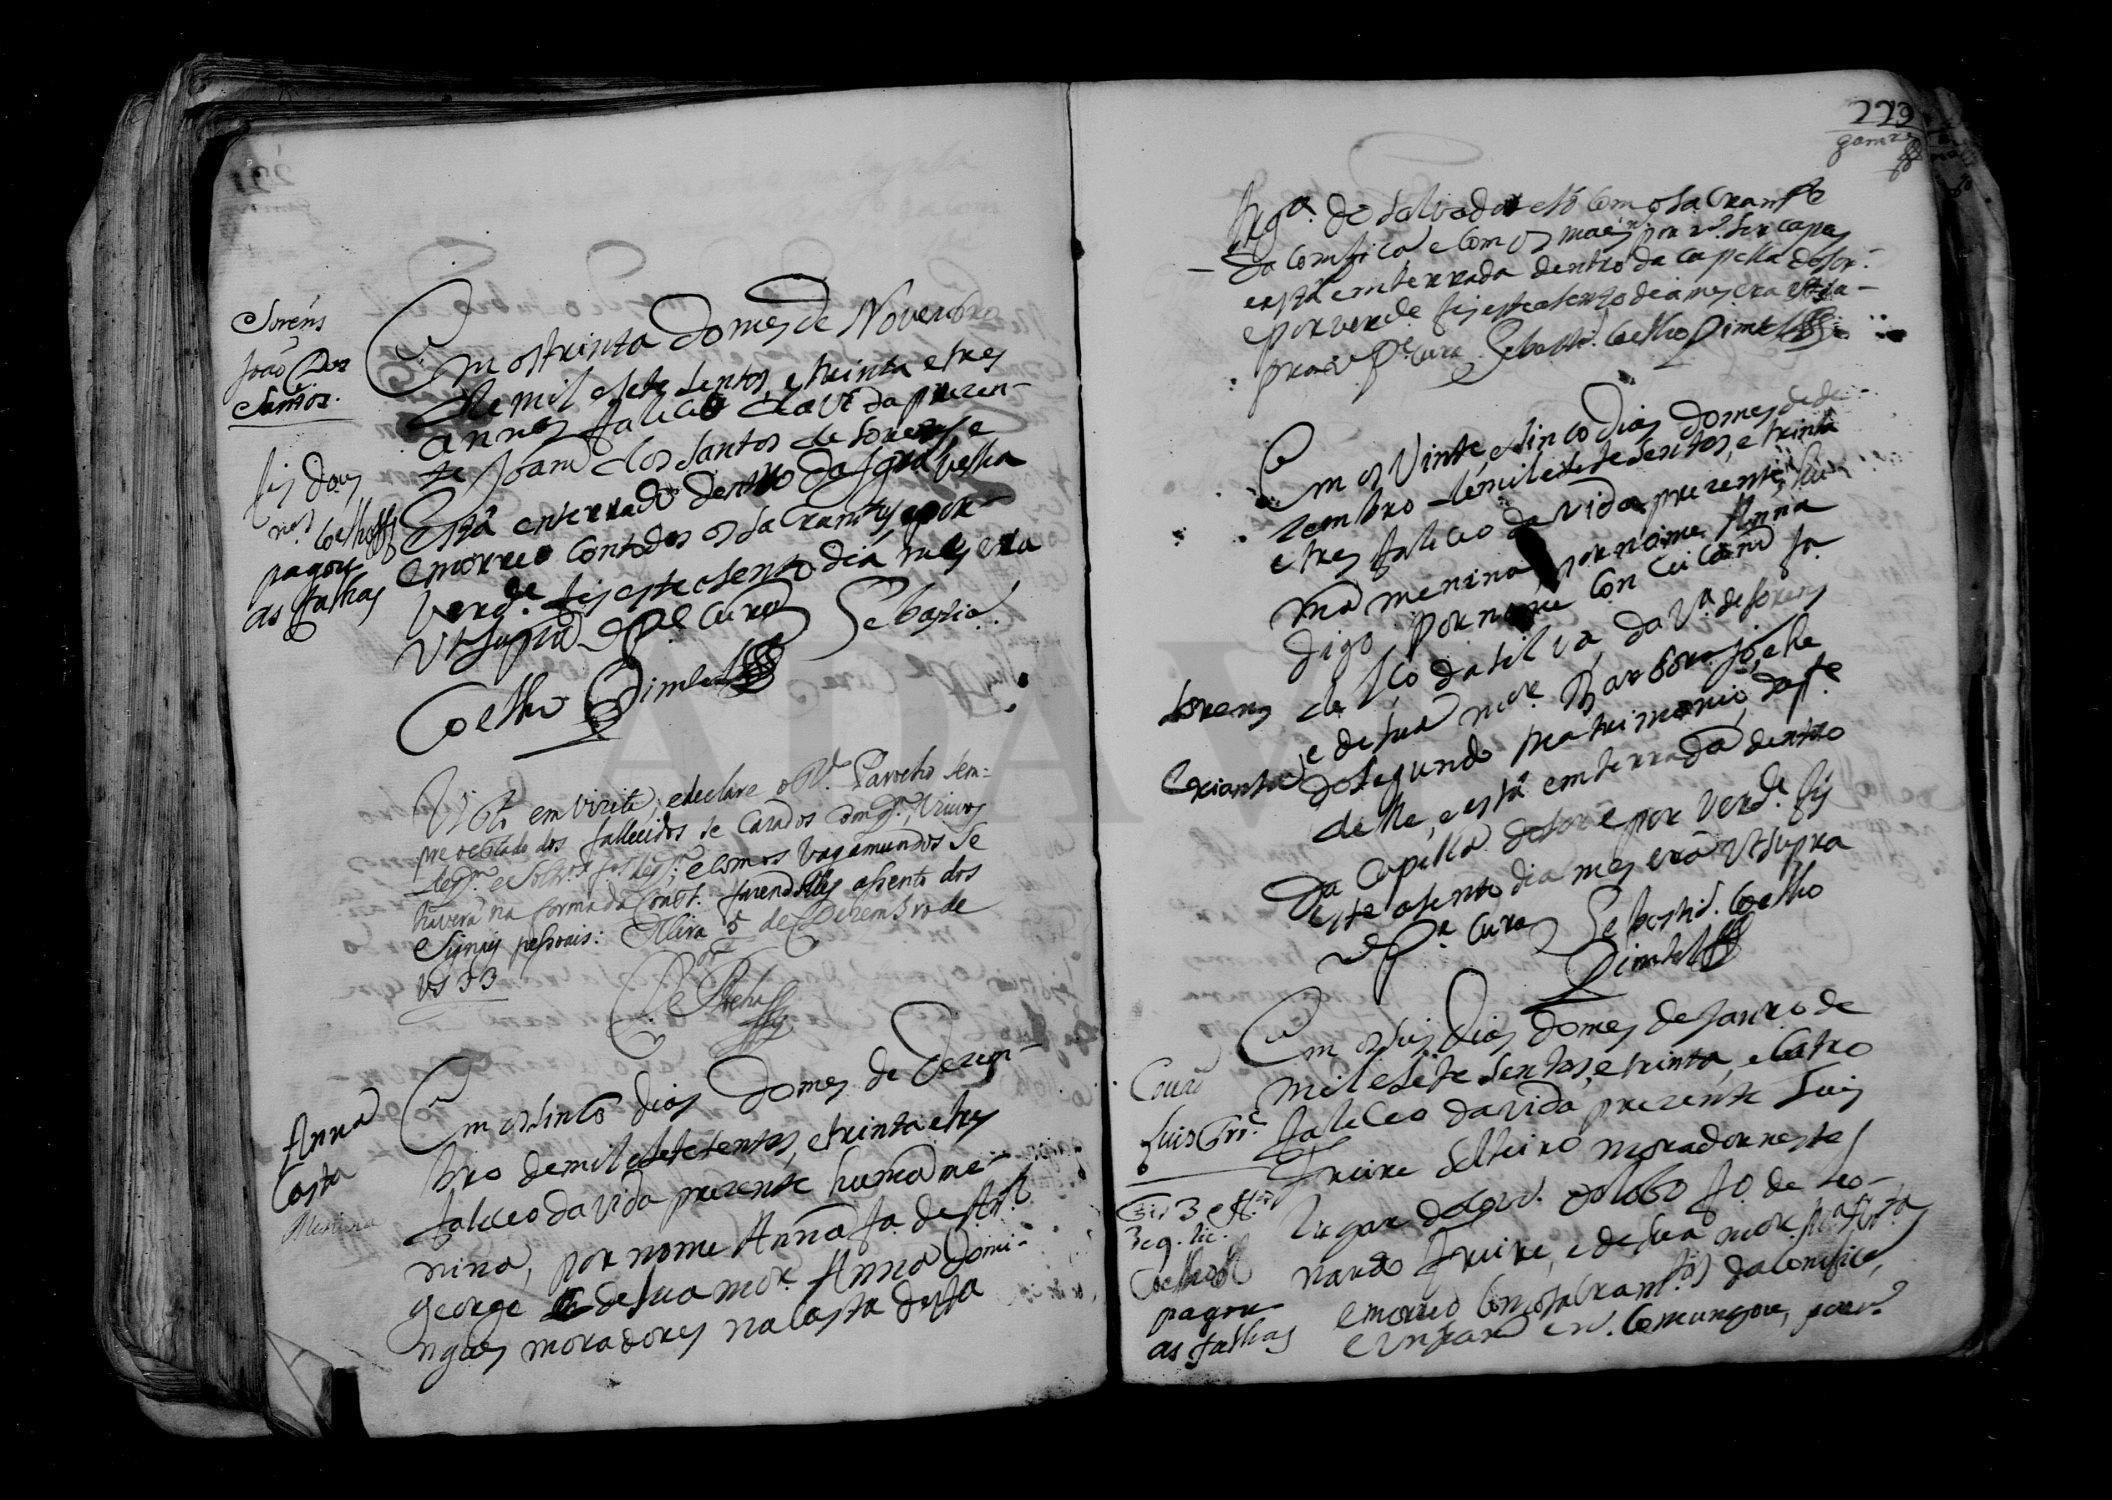 Sorens
João dos
Santos.
Fis dous
nos Coelho
pagou
as falhas
Em os trinta do mes de Novembro
de mil e sete sentos, e trinta e tres
annos faliceo da vida prezen-
te Joam dos Santos de Sorens, e
está enterrado dentro da Igra velha
e morreo con todos os sacramtos, e por
verde fis este asento dia mes era
Ut supra O Pe Cura Sebastiã.
Coelho Pimentel
Vistos em vizita, e declare o Rdo Parocho sem=
pre o estado dos fallecidos se Cazados com qm, Viuvos
de qm e Soltros fos de qm; e com os vagamundos se
haverá na forma da Const. fazendolhes asento dos
signaes pessoais: Alira 5 de Dezembro de
1733
Anna
Costa
Menina
Em os sinco dias do mes de Dezem-
bro de mil e sete sentos, e trinta e tres
faleceo da vida prezente huma me-
nina, por nome Anna fa de Anto
George e de sua mer Anna Domi-
ngues moradores na Costa desta
229
frga. do Salvador e só com o sacramto
da comfisaõ e com os mais por não ser capas
e está emterrada dentro da Capella de Sor.
e por verde fis este asento dia mes era ut su-
pra O Pe Cura Sebastiã. Coelho Pimentel
Em os Vinte, e sinco dias do mes de de-
zembro de mil e sete sentos, e trinta
e tres faliceo da vida prezente, hu-
ma menina por nome Anna
digo por nome Conceicam fa.
Sorens
Crianta
de Fco da Silva, da Va. de Sorens
e de sua mer. Barbora Joze
do segundo matrimonio, da pte
delle, e está emterrada dentro
da Capella de Sore por verde fis
este asento dia mes era Ut supra
O Pe. Cura Sebastiã. Coelho
Pimentel
Em os seis dias do mes de Janro de
mil e sete sentos, e trinta, e catro
Luis Frre
faleceo da vida prezente Luis
Freire Solteiro morador neste
lugar do Couto fo. de Leo-
nardo Freire, e de sua mer.
Coelho
pagou
as falhas
e morreo com os sacramtos da comfisaõ,
e unsam e não Comungou, por